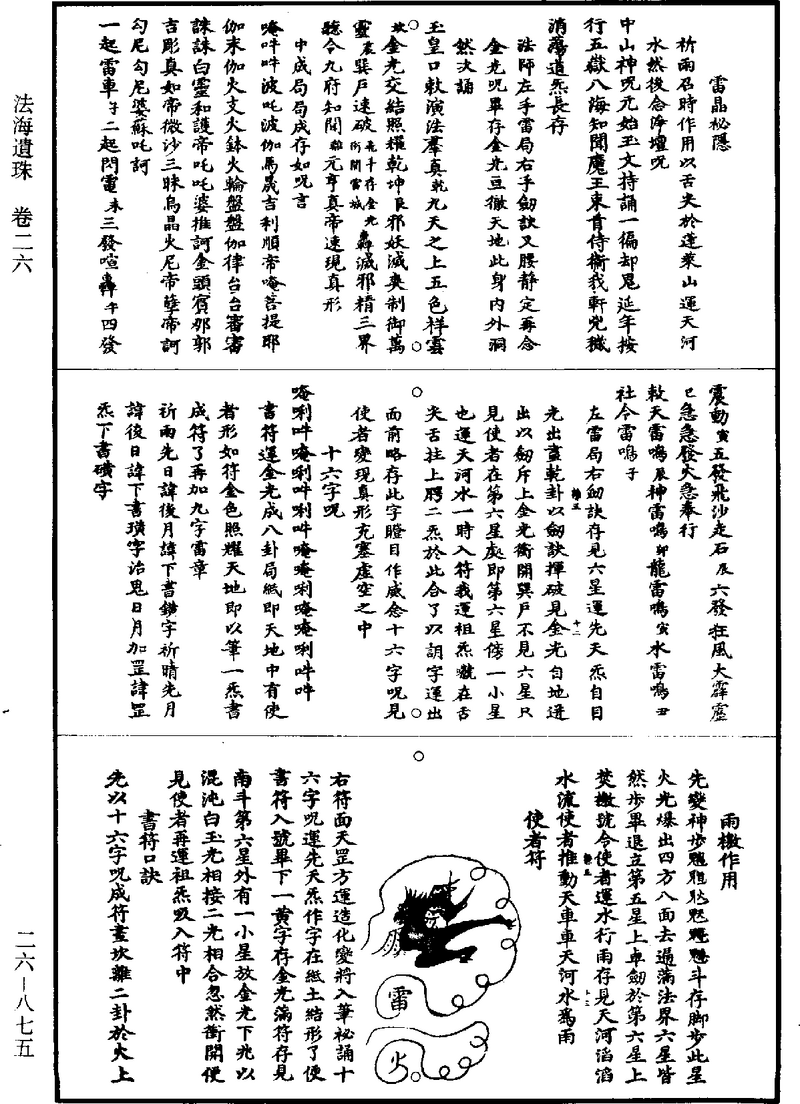 法海遺珠 卷二六
二六—八七五
雷晶祕隱
祈雨召時作用以舌尖於蓬萊山運天河
水然後念淨壇呪
中山神呪元始玉文持誦一徧却鬼延年按
行五嶽八海知聞魔王束首侍衛我軒兇穢
消蕩道炁長存
法師左手雷局右手劒訣又腰靜定再念
金光呪畢存金光亘徹天地此身內外洞
然次誦
玉皇口敕演法羣真乾九天之上五色祥雲
坎金光交結照耀乾坤艮邪妖滅爽制御萬
靈震巽戶速破 轟滅邪精三界
聽令九府知聞離元亨真帝速現真形
中成局局成存如呪言
唵吽吽波吒波伽馬晟吉利順帝唵菩提耶
伽末伽火支火鉢火輪盤盤伽律台台審審
誅誅白靈和護帝吒吒婆推訶金頭賓那郭
吉彫真如帝微沙三昧烏晶火尼帝孽帝訶
勾尼勾尼婆蘇吒訶
一起雷車子二起閃電未三發喧轟午四發
震動寅五發飛沙走石辰六發狂風大霹靂
巳急急發火急奉行
敕天雷鳴辰神雷鳴卯龍雷鳴寅水雷鳴丑
社令雷鳴子
左雷局右劒訣存見六星運先天炁自目
光出畫乾卦以劒訣揮破見金光自地迸
出以劒斥上金光衝開巽戶不見六星只
見使者在第六星處即第六星傍一小星
也運天河水一時入符我運祖炁噓在舌
尖舌拄上腭二炁於此合了以訶字運出
面前略存此字瞪目作威念十六字呪見
使者變現真形充塞虛空之中
十六字呪
唵唎吽唵唎吽唎吽唵唵唎唵唵唎吽吽
書符運金光成八卦局紙即天地中有使
者形如符金色照耀天地即以筆一炁書
成符了再加九字雷章
祈雨先日諱後月諱下書鎖字祈晴先月
諱後日諱下書璜字治鬼日月加罡諱罡
炁下書磺字
雨檄作用
先變神步魁𩲃𩳐魓䰢魒斗存脚步此星
火光爆出四方八面去遍滿法界六星皆
然步畢退立第五星上卓劒於第六星上
焚檄號令使者運水行雨存見天河滔滔
水流使者推動天車車天河水為雨
使者符
雷
火
右符面天罡方運造化變將入筆祕誦十
六字呪運先天炁作字在紙土結形了便
書符入號畢下一黃字存金光滿符存見
南斗第六星外有一小星放金光下兆以
混沌白玉光相接二光相合忽然衝開便
見使者再運祖炁吸入符中
書符口訣
先以十六字呪成符畫坎離二卦於火上